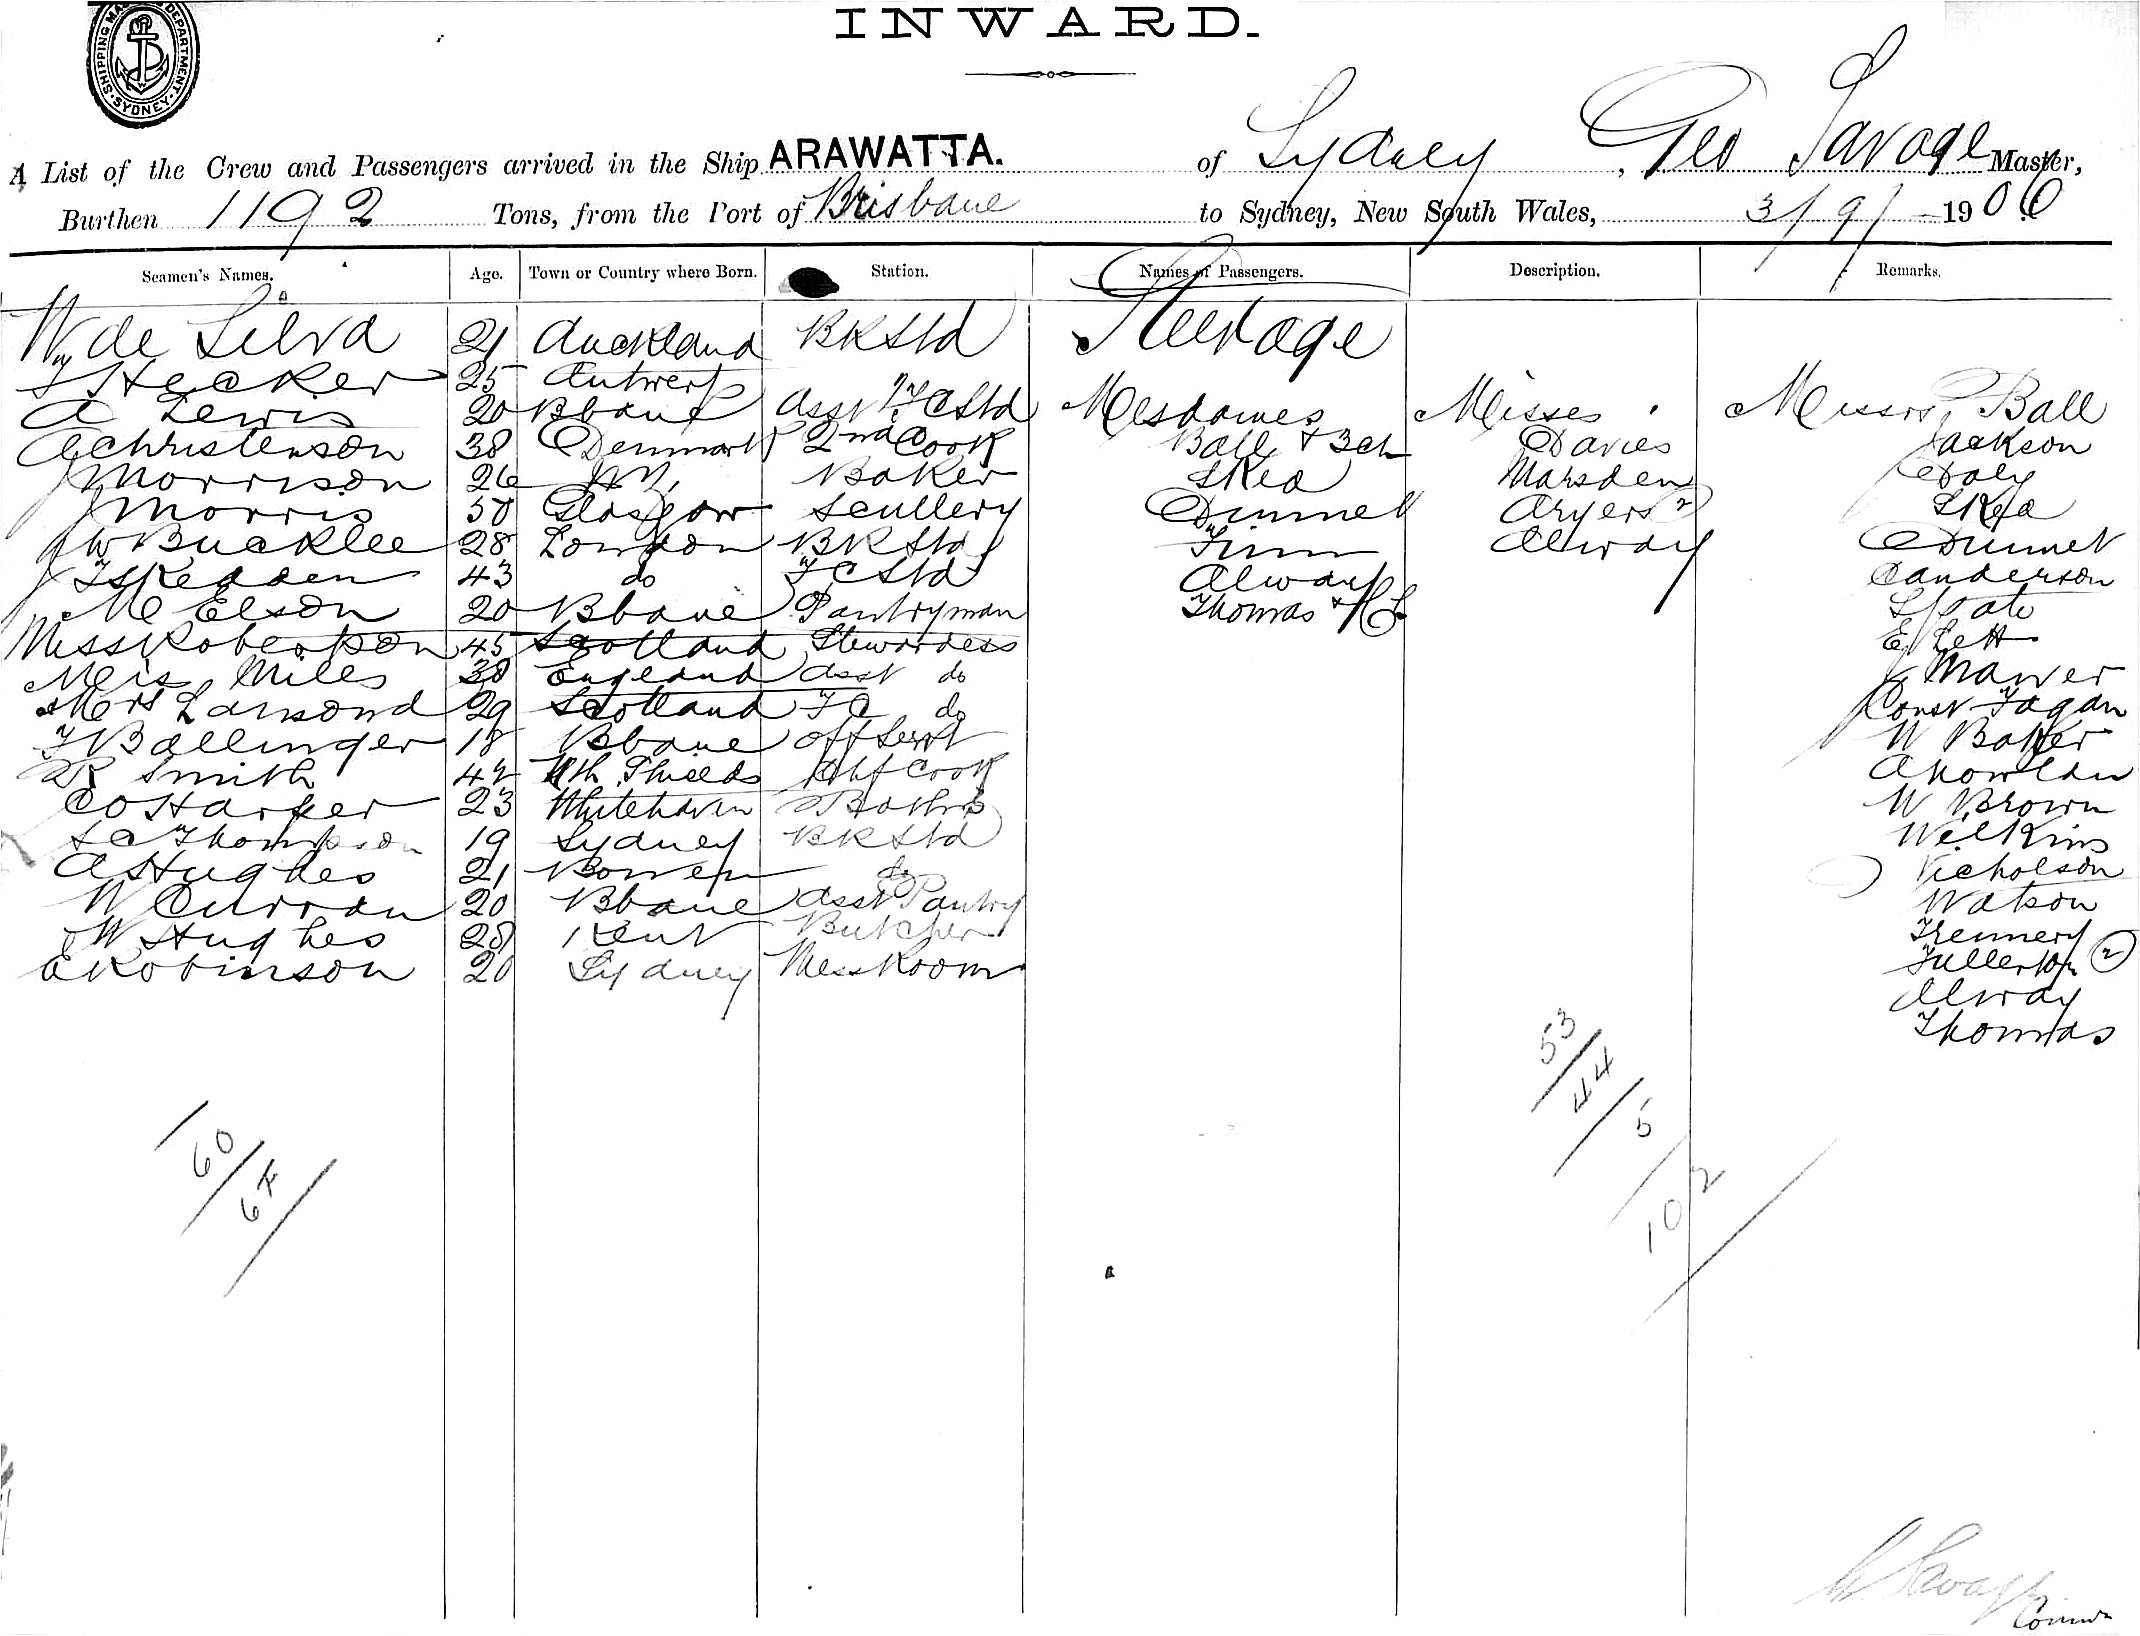 INWARD.
SHIPPING MA DEPARTMENT. SYDNEY
A List of the Crew and Passengers arrived in the Ship ARAWATTA. of Sydney, Geo Savage Master,
Burthen 1192 Tons, from the Port of Brisbane to Sydney, New South Wales, 3/9/ 1906
Seamen's Names. Age. Town or Country where Born. Station. Names of Passengers. Description. Remarks.
Wm de Silva 21 Auckland BKStd Steerage
Hecker 25 Antwerp
A Lewis 20 Bbane Asst FCStd Mesdames Misses Messrs Ball
A Christenson 38 Denmark 2nd Cook Ball + 3 ch Davies Jackson
J Morrison 26 Baker Skea Marsden Daly
J Morris 50 Glasgow Scullery Dunnet Aryers 2 Skea
J W Bucklee 28 London BKStd Finn Alway Dunnet
J Skedden 43 do FCStd Alway Sanderson
Mc Elson 20 Bbane Pantryman Thomas +
Miss Robertson 45 Scotland Stewardess E Lett
Mrs Miles 38 England Asst do Mawer
Mrs Lamond 29 Scotland FC do Const Fagan
F Ballinger 18 Bbane Off Servt W Baker
R Smith 42 Nth Shields Chf Cook
C O Harper 23 Whitehaven W Brown
S C Thompson 19 Sydney BKStd Wilkins
A Hughes 21 Bowen do Nicholson
W Curran 20 Bbane Asst Pantry Watson
J W Hughes 28 Kent Butcher Trennery
E Robinson 20 Sydney MessRoom Fullerton 2
Alway
Thomas
53
44
5
102
60
67